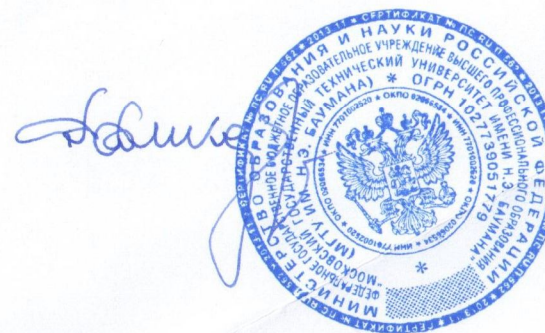 СЕРТИФИКАТ № ПС RU П 562 * 2013.11 *
МИНИСТЕРСТВО ОБРАЗОВАНИЯ И НАУКИ РОССИЙСКОЙ ФЕДЕРАЦИИ
ФЕДЕРАЛЬНОЕ ГОСУДАРСТВЕННОЕ БЮДЖЕТНОЕ ОБРАЗОВАТЕЛЬНОЕ УЧРЕЖДЕНИЕ ВЫСШЕГО ПРОФЕССИОНАЛЬНОГО ОБРАЗОВАНИЯ
"МОСКОВСКИЙ ГОСУДАРСТВЕННЫЙ ТЕХНИЧЕСКИЙ УНИВЕРСИТЕТ ИМЕНИ Н.Э. БАУМАНА"
(МГТУ ИМ. Н.Э. БАУМАНА) * ОГРН 1027739051779 *
ИНН 7701002520 * ОКПО 02066534 *